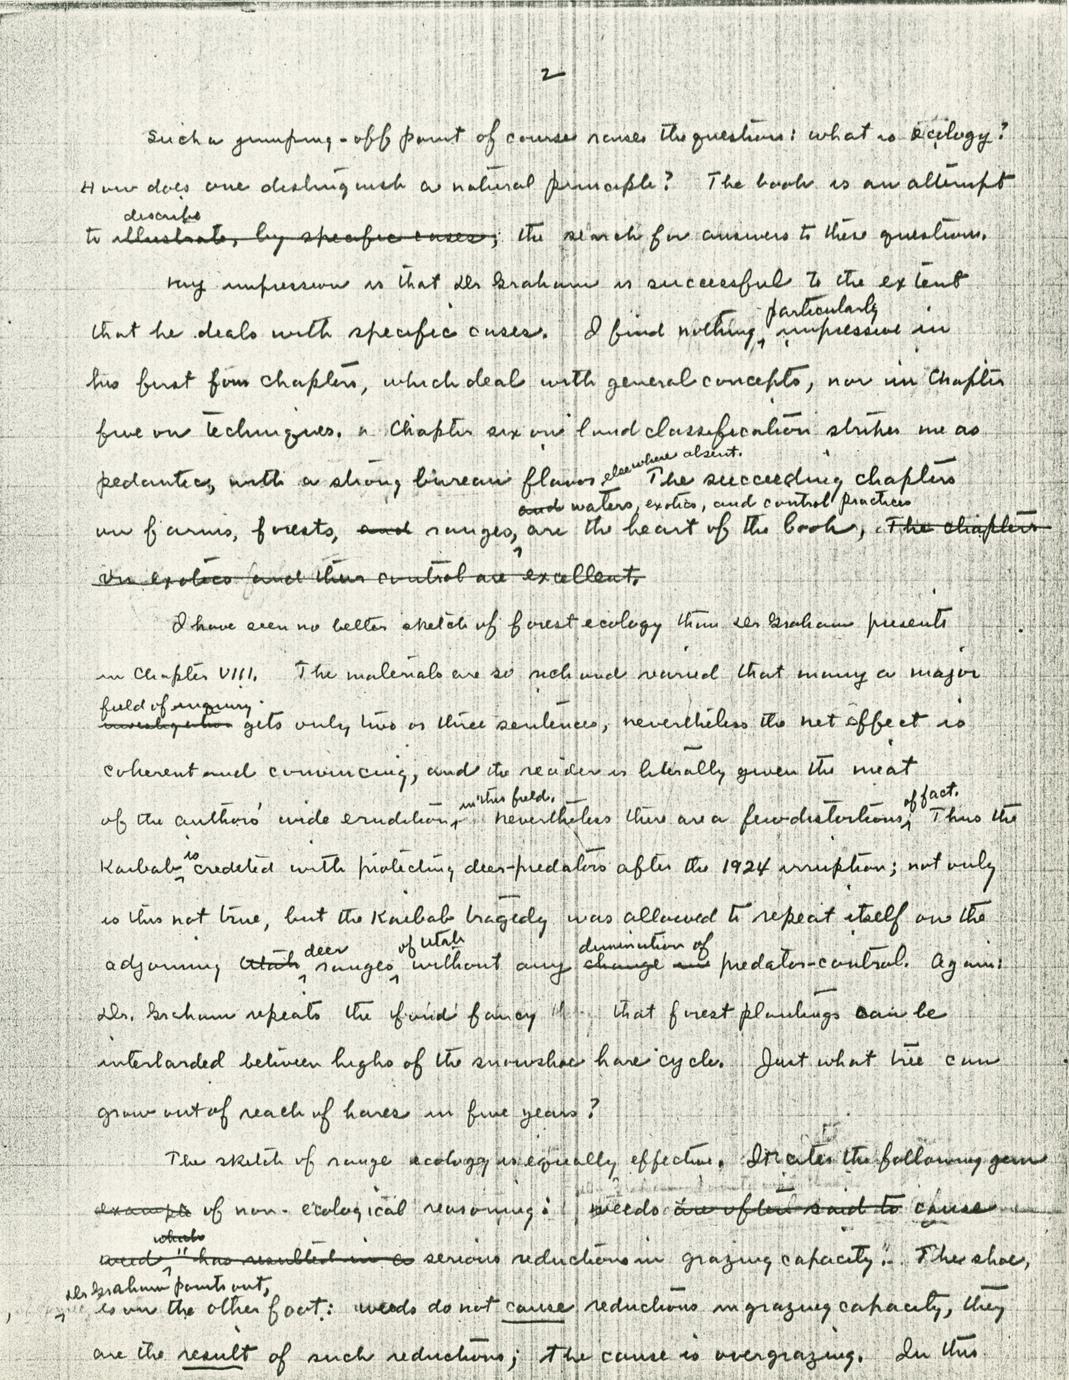 2
Such a jumping-off point of course raises the question: what is ecology?
How does one distinguish a natural principle? The book is an attempt
describe
to illustrate, by specific cases, the search for answers to these questions.
My impression is that Dr Graham is successful to the extent
particularly
that he deals with specific cases. I find nothing impressive in
his first four chapters, which deal with general concepts, nor in Chapter
five on techniques. Chapter six on land classification strikes me as
elsewhere absent.
pedantic, with a strong bureau flavor The succeeding chapters
and waters, exotics, and control practices
on farms, forests, and ranges, are the heart of the book, The chapters
on exotics and their control are excellent.
I have seen no better sketch of forest ecology than Dr Graham presents
in Chapter VIII. The materials are so rich and varied that many a major
field of inquiry
investigation gets only two or three sentences, nevertheless the net effect is
coherent and convincing, and the reader is literally given the meat
in this field. of fact.
of the authors' wide erudition nevertheless there are a few distortions Thus the
is
Kaibab credited with protecting deer-predators after the 1924 irruption; not only
is this not true, but the Kaibab tragedy was allowed to repeat itself on the
deer of Utah diminution of
adjoining Utah ranges without any change in predator-control. Again:
Dr. Graham repeats the fond fancy that forest plantings can be
interlarded between highs of the snowshoe hare cycle. Just what tree can
grow out of reach of hares in five years?
The sketch of range ecology is equally effective. It cites the following gem
example of non-ecological reasoning: weeds are often said to cause
weed "has resulted in a serious reductions in grazing capacity". The shoe,
Dr Graham points out,
is on the other foot: weeds do not cause reductions in grazing capacity, they
are the result of such reductions; the cause is overgrazing. In this